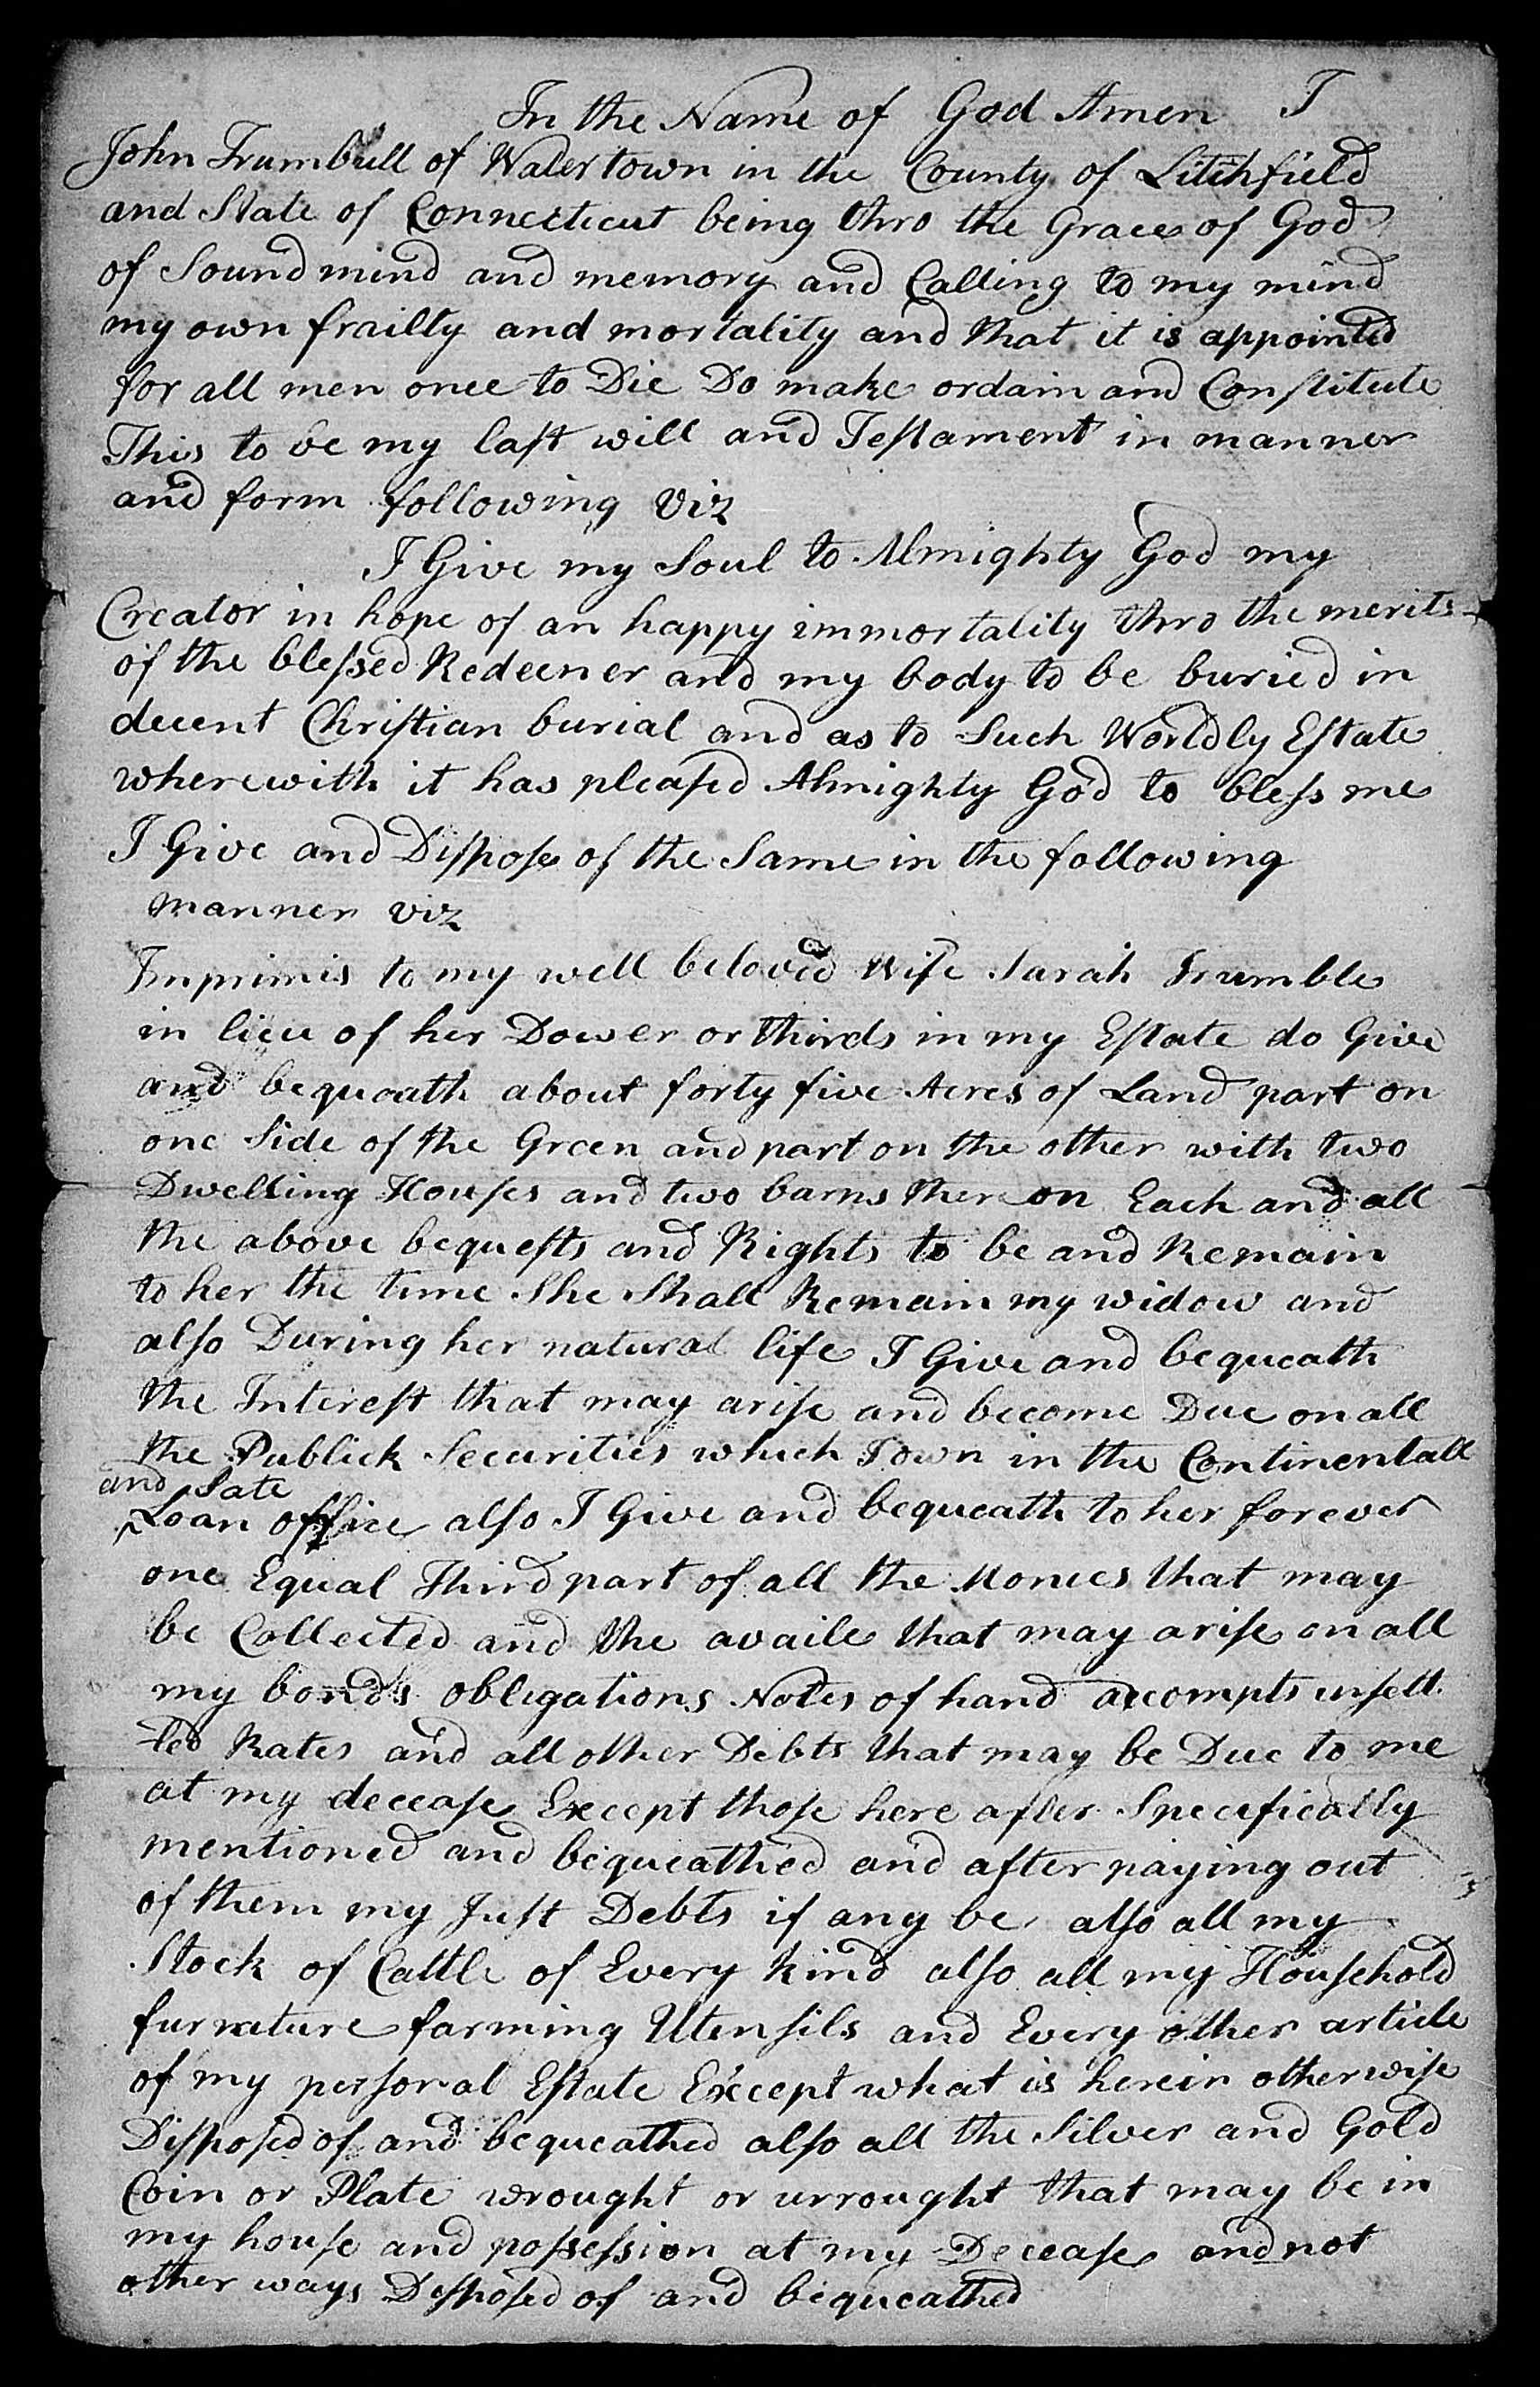 In the Name of God Amen I
John Trumbull of Watertown in the County of Litchfield
and State of Connecticut being thro the Grace of God
of Sound mind and memory and Calling to my mind
my own frailty and mortality and that it is appointed
for all men once to Die Do make ordain and Constitute
This to be my last will and Testament in manner
and form following Viz
I Give my Soul to Almighty God my
Creator in hope of an happy immortality thro the merits
of the blessed Redeemer and my body to be buried in
decent Christian burial and as to Such Worldly Estate
wherewith it has pleased Almighty God to bless me
I Give and Dispose of the Same in the following
manner viz
Imprimis to my well beloved Wife Sarah Trumble
in lieu of her Dower or thirds in my Estate do Give
and bequeath about forty five Acres of Land part on
one Side of the Green and part on the other with two
Dwelling Houses and two barns there on Each and all
the above bequests and Rights to be and Remain
to her the time She Shall Remain my widow and
also During her natural life I Give and bequeath
the Interest that may arise and become Due on all
the Publick Securities which I own in the Continentall
and Sate
Loan office also I Give and bequeath to her forever
one Equal Third part of all the Monies that may
be Collected and the avails that may arise on all
my bonds obligations Notes of hand accompts unsett
-led Rates and all other Debts that may be Due to me
at my decease Except those here after Specifically
mentioned and bequeathed and after paying out
of them my Just Debts if any be also all my
Stock of Cattle of Every kind also all my Household
furniture farming Utensils and Every other article
of my personal Estate Except what is herein otherwise
Disposed of and bequeathed also all the Silver and Gold
Coin or Plate wrought or unrought that may be in
my house and possession at my Decease and not
other ways Disposed of and bequeathed